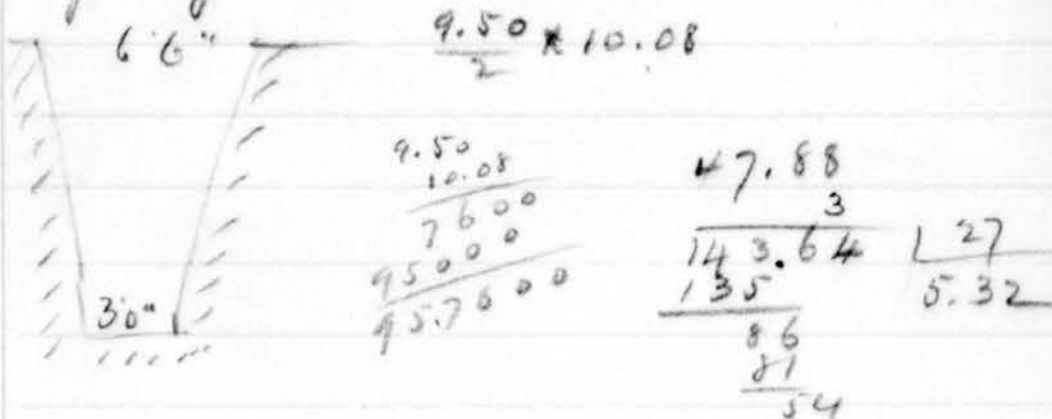 6'6"
9.50 x 10.08
2
9.50
10.08
7600
9500
95.7600
3'0"
47.88
3
143.64 27
135 5.32
86
81
54